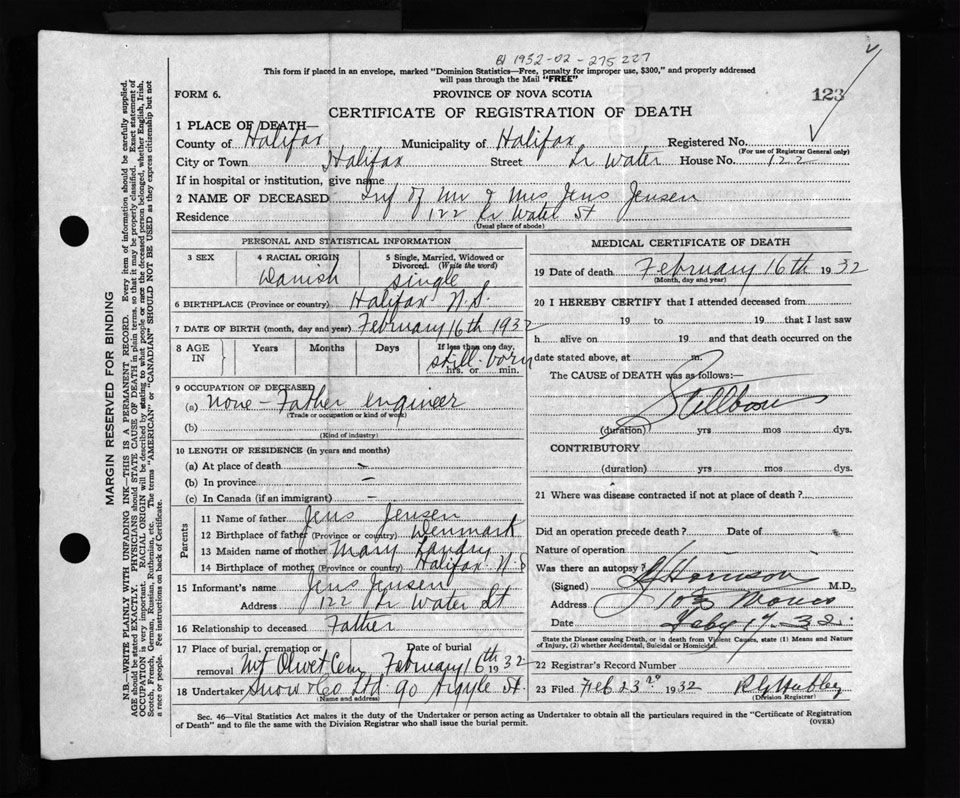 BI 1932-02-275227
This form if placed in an envelope, marked "Dominion Statistics—Free, penalty for improper use, $300," and properly addressed
will pass through the Mail "FREE"
FORM 6. PROVINCE OF NOVA SCOTIA 123
CERTIFICATE OF REGISTRATION OF DEATH
1 PLACE OF DEATH—
County of Halifax Municipality of Halifax Registered No.
(For use of Registrar General only)
City or Town Halifax Street Lr Water House No. 122
If in hospital or institution, give name
2 NAME OF DECEASED Inf of Mr & Mrs Jens Jensen
Residence 122 Lr Water St
(Usual place of abode)
PERSONAL AND STATISTICAL INFORMATION
3 SEX 4 RACIAL ORIGIN 5 Single, Married, Widowed or
Divorced. (Write the word)
Danish Single
6 BIRTHPLACE (Province or country) Halifax N.S.
7 DATE OF BIRTH (month, day and year) February 16th 1932
8 AGE IN Years Months Days If less than one day,
still-born
hrs. or min.
9 OCCUPATION OF DECEASED
(a) None - Father engineer
(Trade or occupation or kind of work)
(b)
(Kind of industry)
10 LENGTH OF RESIDENCE (in years and months)
(a) At place of death –
(b) In province –
(c) In Canada (if an immigrant) –
Parents
11 Name of father Jens Jensen
12 Birthplace of father (Province or country) Denmark
13 Maiden name of mother Mary Landry
14 Birthplace of mother (Province or country) Halifax N.S
15 Informant's name Jens Jensen
Address 122 Lr Water St
16 Relationship to deceased Father
17 Place of burial, cremation or Date of burial
removal Mt Olivet Cem February 16th 1932
18 Undertaker Snow & Co Ltd 90 Argyle St.
(Name and address)
MEDICAL CERTIFICATE OF DEATH
19 Date of death February 16th 1932
(Month, day and year)
20 I HEREBY CERTIFY that I attended deceased from
19 to 19 that I last saw
h alive on 19 and that death occurred on the
date stated above, at m.
The CAUSE of DEATH was as follows:—
Stillborn
(duration) yrs mos dys.
CONTRIBUTORY
(duration) yrs mos dys.
21 Where was disease contracted if not at place of death?
Did an operation precede death? Date of
Nature of operation
Was there an autopsy?
(Signed) Morrison M.D.,
Address 103
Date Feby 17. 32.
State the Disease causing Death, or in death from Violent Causes, state (1) Means and Nature
of Injury, (2) whether Accidental, Suicidal or Homicidal.
22 Registrar's Record Number
23 Filed Feb 23rd 1932
(Division Registrar)
Sec. 46—Vital Statistics Act makes it the duty of the Undertaker or person acting as Undertaker to obtain all the particulars required in the "Certificate of Registration
of Death" and to file the same with the Division Registrar who shall issue the burial permit. (OVER)
MARGIN RESERVED FOR BINDING
N.B.—WRITE PLAINLY WITH UNFADING INK—THIS IS A PERMANENT RECORD. Every item of information should be carefully supplied.
AGE should be stated EXACTLY. PHYSICIANS should STATE CAUSE OF DEATH in plain terms, so that it may be properly classified. Exact statement of
OCCUPATION is very important. RACIAL ORIGIN will be described by stating to what people or race the deceased person belonged, whether English, Irish,
Scotch, French, German, Russian, Ruthenian, etc. The terms "AMERICAN" or "CANADIAN" SHOULD NOT BE USED as they express citizenship but not
a race or people. Fee instructions on back of Certificate.